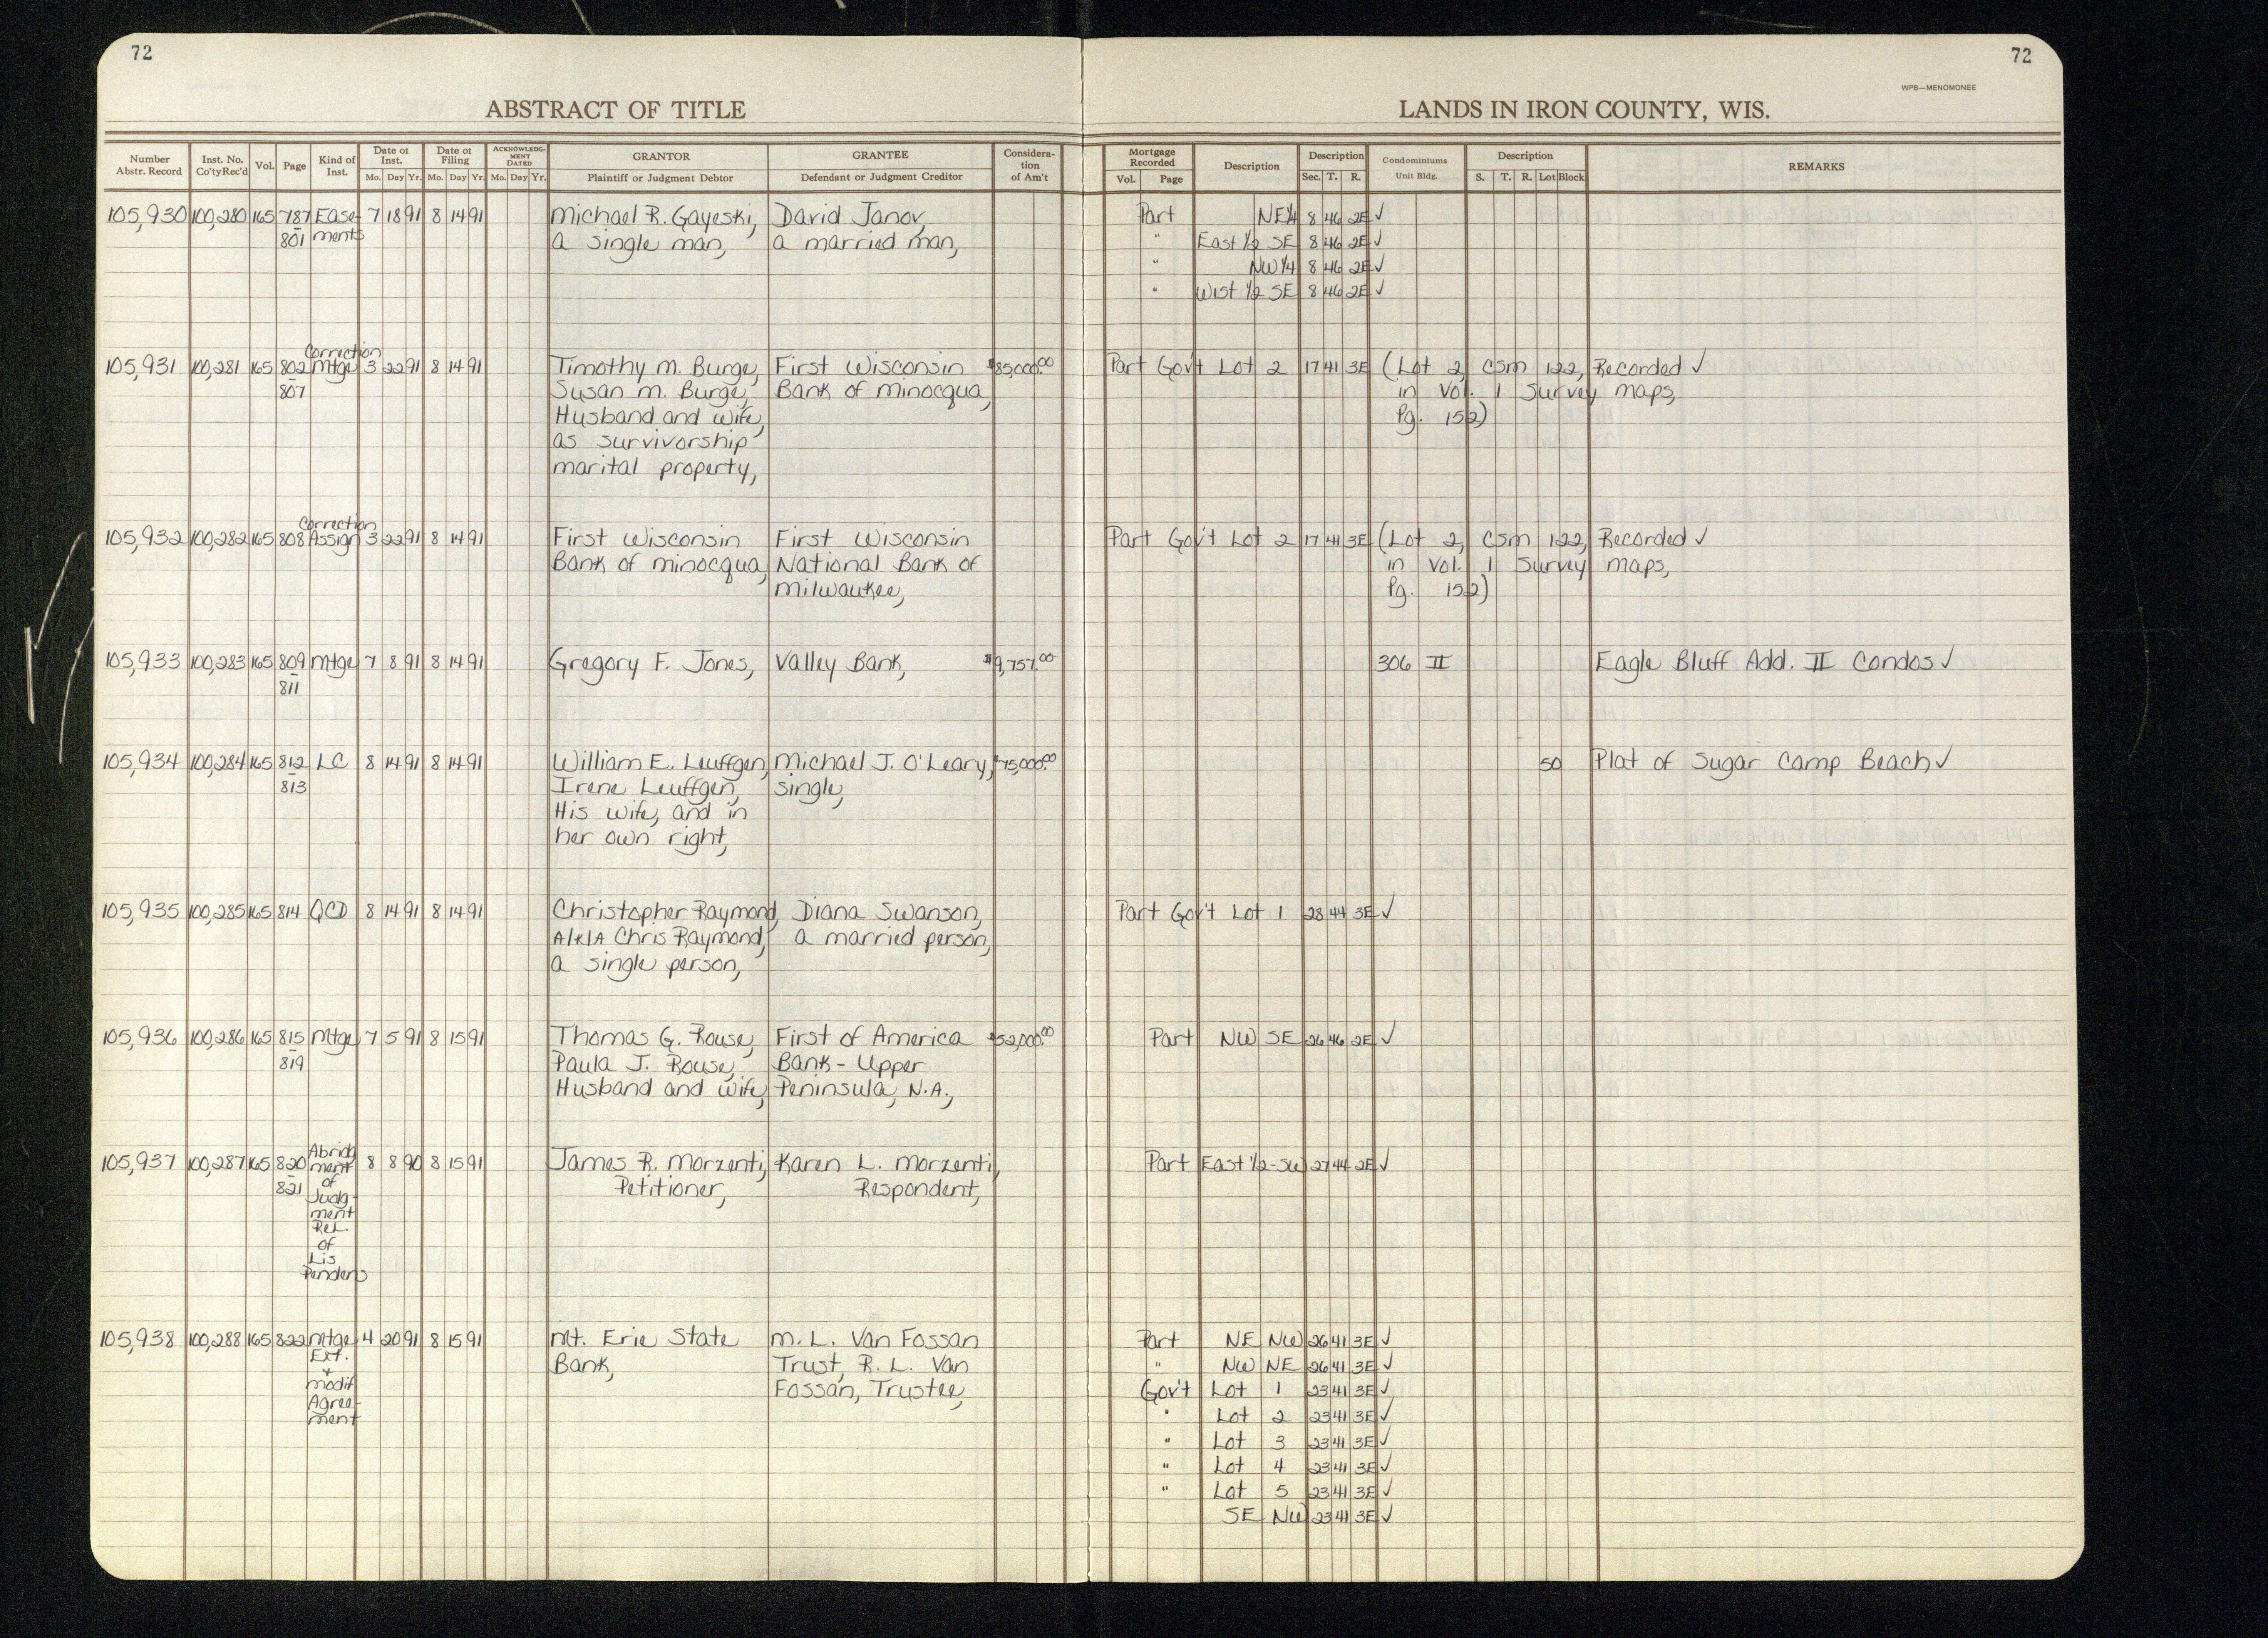 72
72
WPB—MENOMONEE
ABSTRACT OF TITLE
LANDS IN IRON COUNTY, WIS.
Number Abstr. Record | Inst. No. Co'ty Rec'd | Vol. | Page | Kind of Inst. | Date of Inst. Mo. Day Yr. | Date of Filing Mo. Day Yr. | ACKNOWLEDGMENT DATED Mo. Day Yr. | GRANTOR Plaintiff or Judgment Debtor | GRANTEE Defendant or Judgment Creditor | Consideration of Am't | Mortgage Recorded Vol. Page | Description | Description Sec. T. R. | Condominiums Unit Bldg. | Description S. T. R. Lot Block | REMARKS
105,930 100,280 165 787 Ease- 7 18 91 8 14 91 Michael R. Gayeski, David Janov, Part NE¼ 8 46 2E ✓
801 ments a single man, a married man, " East ½ SE 8 46 2E ✓
" NW¼ 8 46 2E ✓
" West ½ SE 8 46 2E ✓
Correction
105,931 100,281 165 802 Mtge 3 22 91 8 14 91 Timothy M. Burge, First Wisconsin $85,000.00 Part Gov't Lot 2 17 41 3E (Lot 2, CSM 122, Recorded ✓
807 Susan M. Burge, Bank of Minocqua, in Vol. 1 Survey Maps,
Husband and wife, Pg. 152)
as survivorship
marital property,
Correction
105,932 100,282 165 808 Assign 3 22 91 8 14 91 First Wisconsin First Wisconsin Part Gov't Lot 2 17 41 3E (Lot 2, CSM 122, Recorded ✓
Bank of Minocqua, National Bank of in Vol. 1 Survey Maps,
Milwaukee, Pg. 152)
105,933 100,283 165 809 Mtge 7 8 91 8 14 91 Gregory F. Jones, Valley Bank, $9,757.00 306 II Eagle Bluff Add. II Condos ✓
811
105,934 100,284 165 812 LC 8 14 91 8 14 91 William E. Leuffgen, Michael J. O'Leary, $75,000.00 50 Plat of Sugar Camp Beach ✓
813 Irene Leuffgen, single,
His wife, and in
her own right,
105,935 100,285 165 814 QCD 8 14 91 8 14 91 Christopher Raymond, Diana Swanson, Part Gov't Lot 1 28 44 3E ✓
A/K/A Chris Raymond, a married person,
a single person,
105,936 100,286 165 815 Mtge 7 5 91 8 15 91 Thomas G. Rouse, First of America $52,000.00 Part NW SE 26 46 2E ✓
819 Paula J. Rouse, Bank - Upper
Husband and wife, Peninsula, N.A.,
105,937 100,287 165 820 Abridg 8 8 90 8 15 91 James R. Morzenti, Karen L. Morzenti, Part East ½-SW 27 44 2E ✓
821 ment Petitioner, Respondent,
of
Judg-
ment
Rel.
of
Lis
Pendens
105,938 100,288 165 822 Mtge 4 20 91 8 15 91 Mt. Erie State M. L. Van Fossan Part NE NW 26 41 3E ✓
Ext. Bank, Trust, R. L. Van " NW NE 26 41 3E ✓
+
Modif Fossan, Trustee, Gov't Lot 1 23 41 3E ✓
Agree- " Lot 2 23 41 3E ✓
ment
" Lot 3 23 41 3E ✓
" Lot 4 23 41 3E ✓
" Lot 5 23 41 3E ✓
SE NW 23 41 3E ✓